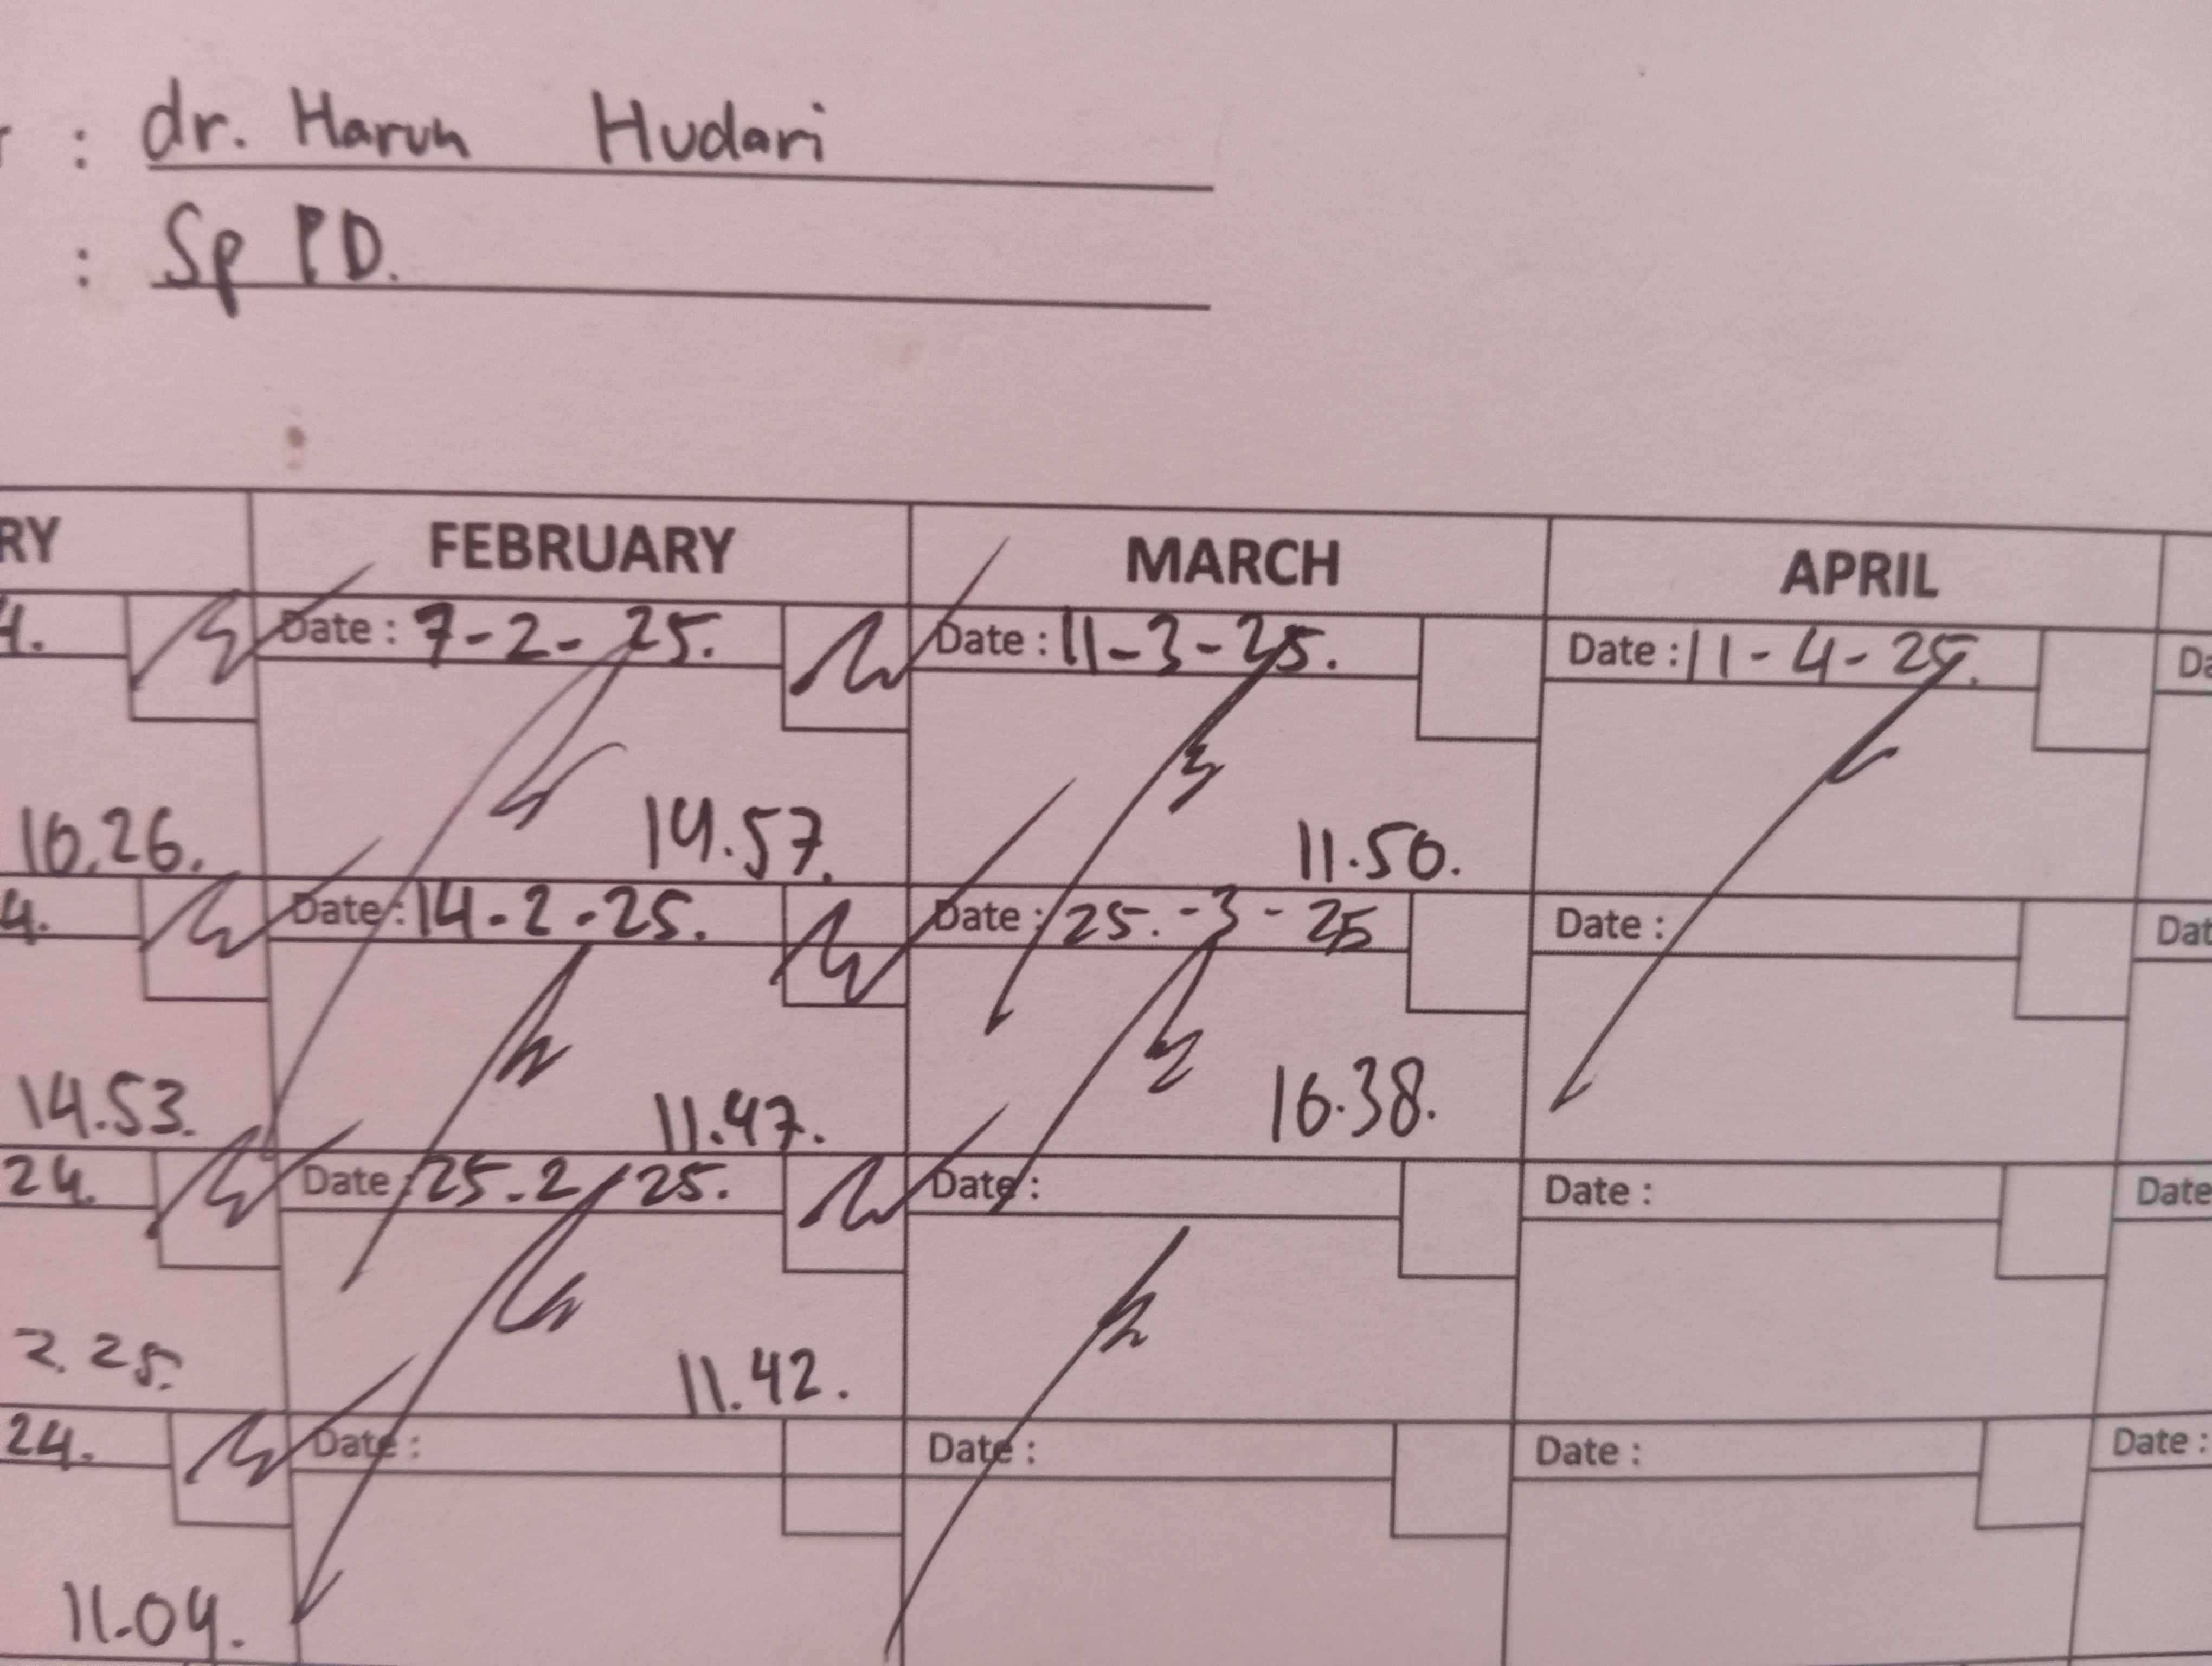 : dr. Harun Hudari
: Sp PD.
RY FEBRUARY MARCH APRIL
4. Date : 7-2-25. Date : 11-3-25. Date : 11-4-25. Da
10.26. 14.57. 11.50.
4. Date : 14-2-25. Date : 25.-3-25 Date : Dat
14.53. 11.47. 16.38.
24. Date : 25-2 25. Date : Date : Date
2.25. 11.42.
24. Date : Date : Date : Date :
11.04.